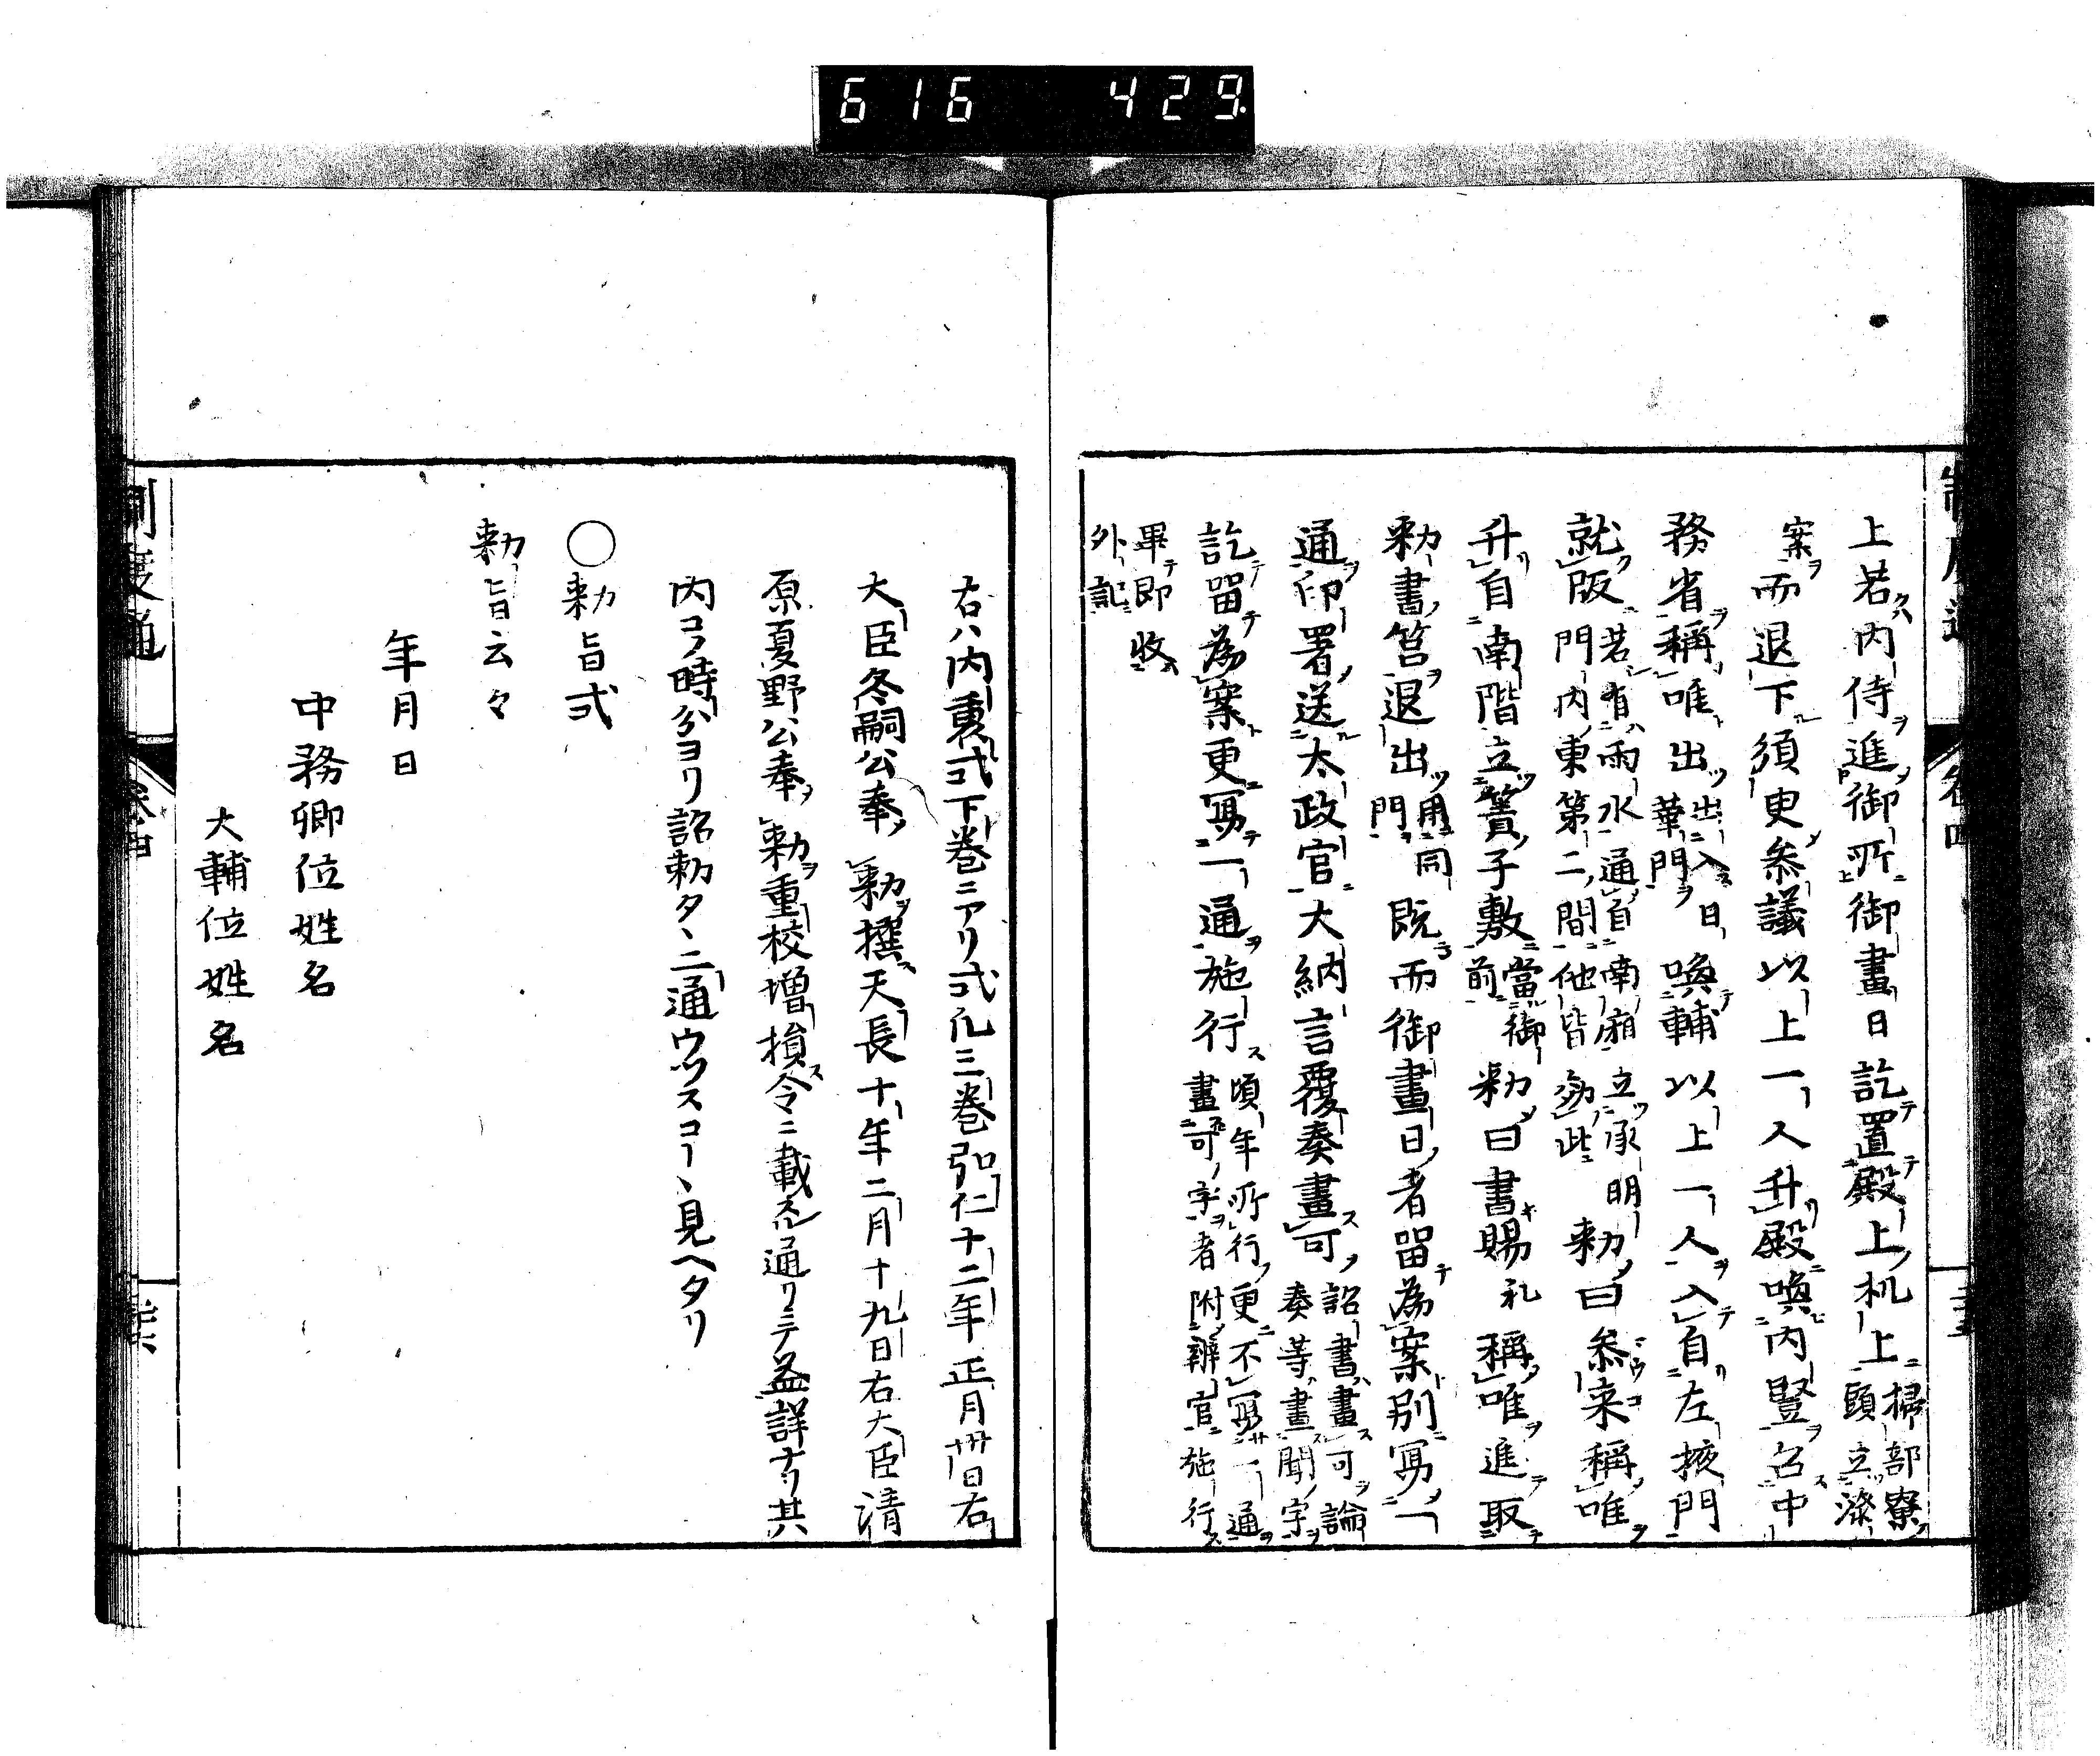 616 429
制度通
卷四
上若内侍進御所御畫日訖置殿上机上掃部寮
頭立漆
案而退下須臾参議以上一人升殿喚内豎召中
務省稱唯出出入日
華門喚輔以上一人入自左掖門
就版若有雨水通自南廂立承明
門内東第二間他皆效此勅曰参来稱唯
升自南階立簀子敷當御
前勅曰書賜礼稱唯進取
勅書筥退出用同
門既而御畫日者留為案別冩一
通印署送太政官大納言覆奏畫可詔書畫可論
奏等畫聞字
訖留為案更冩一通施行頃年所行更不冩一通
畫可字者附辨官施行
畢即收
外記
右ハ内裏式下巻ニアリ式凡三巻弘仁十二年正月卅日右
大臣冬嗣公奉勅撰天長十年二月十九日右大臣清
原夏野公奉勅重校增損ス令ニ載ル通リニテ益詳ナリ共
内コノ時分ヨリ詔勅タヽ二通ウツスコーヽ見ヘタリ
〇勅旨式
勅旨云々
年月日
中務卿位姓名
大輔位姓名
制度通
卷四